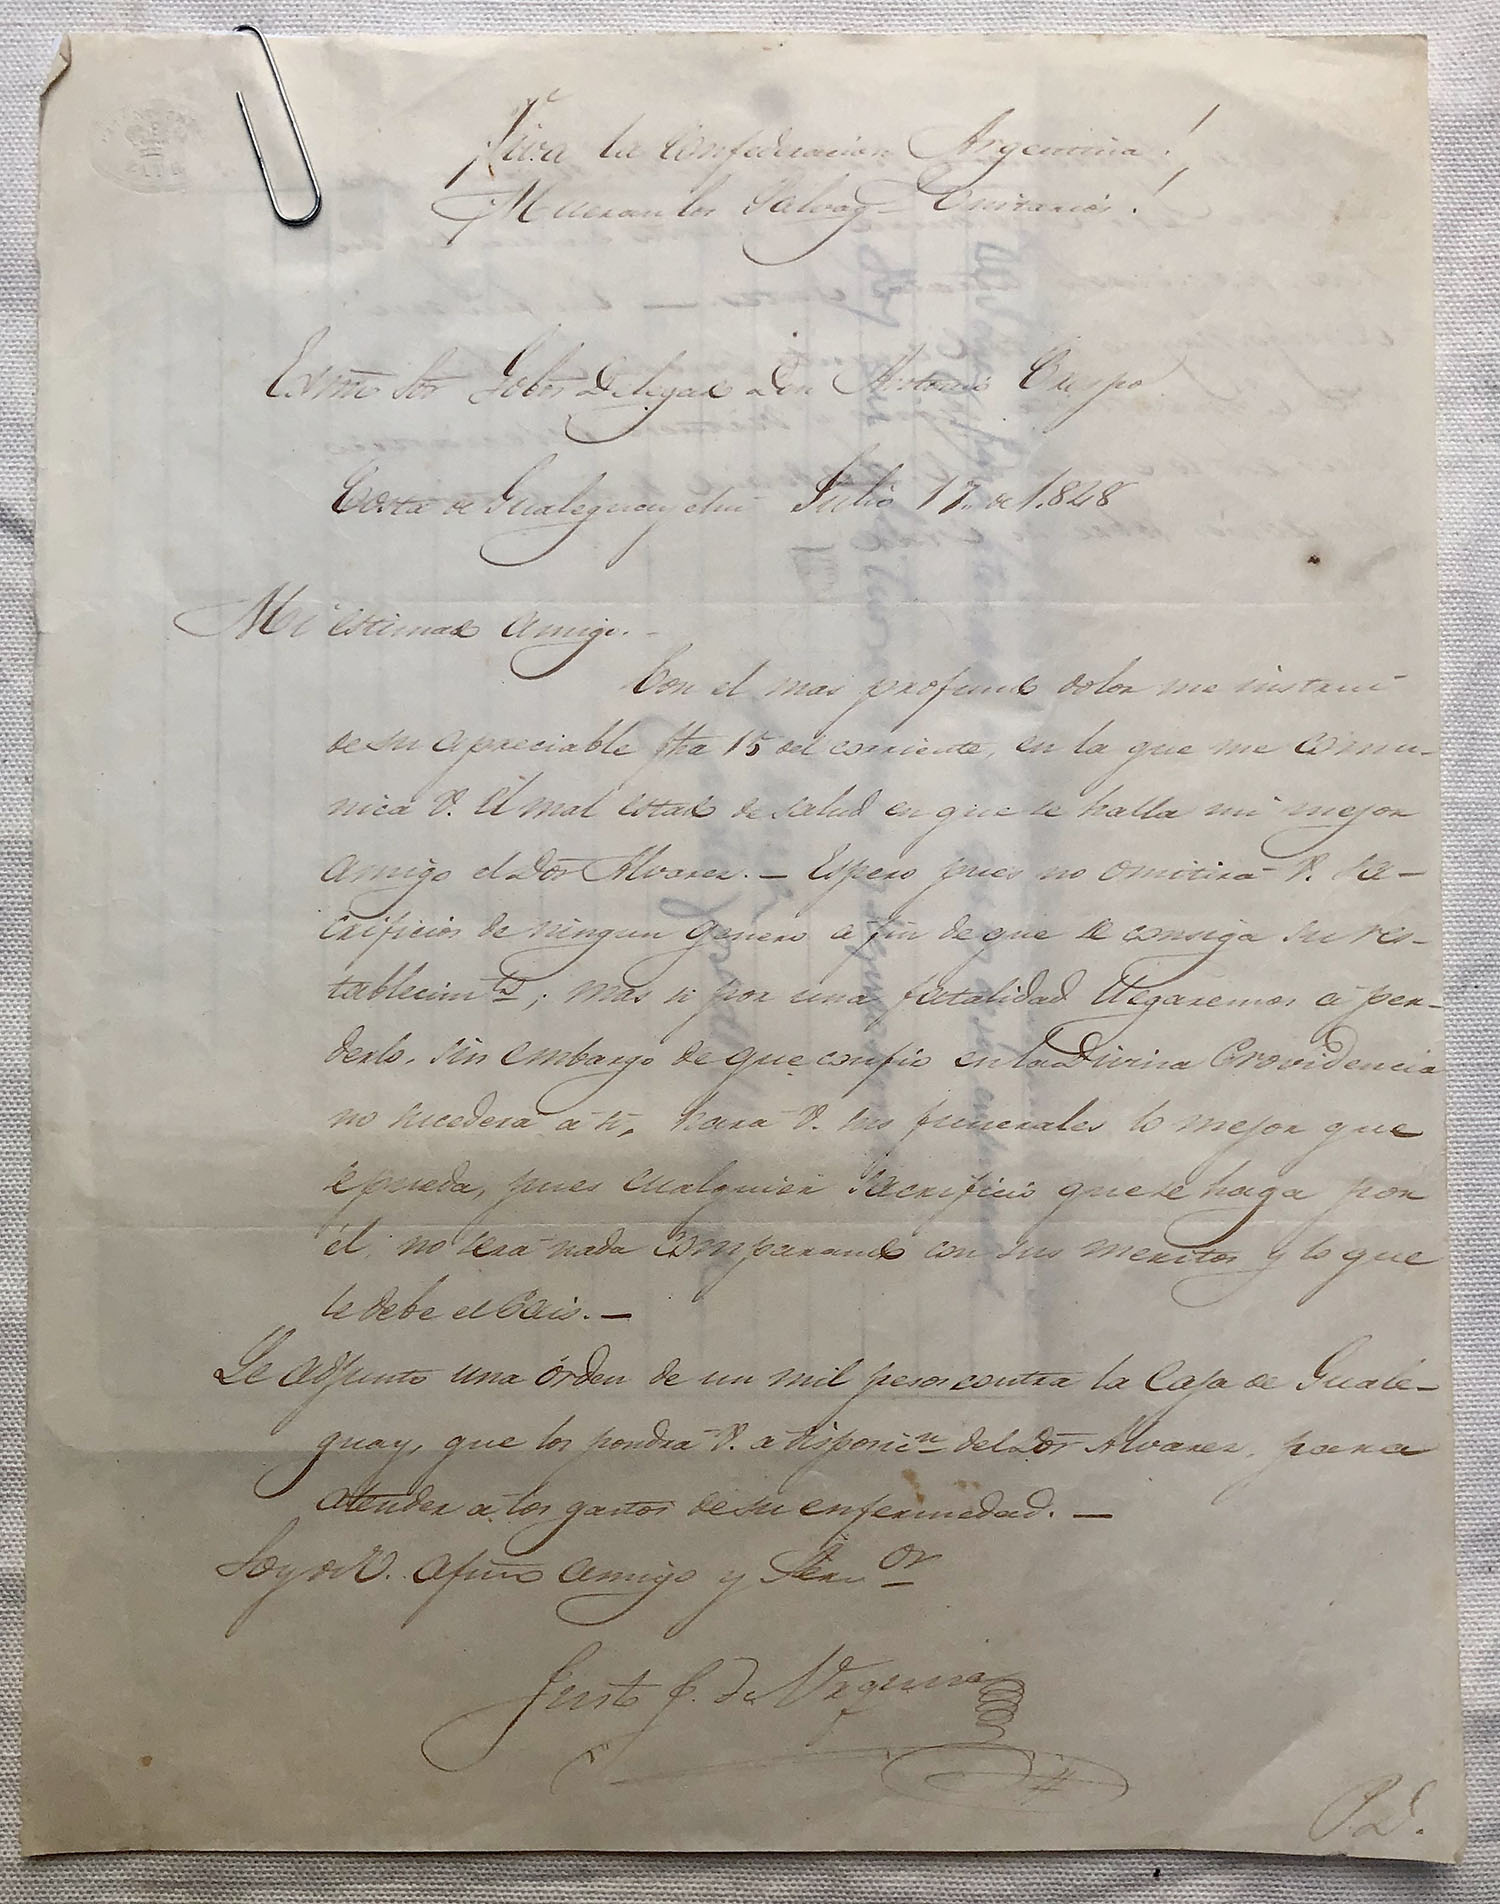 Viva la Confederacion Argentina!
Mueran los Salvag.s Unitarios!
Exmo Sor Gobor Delegado Don Antonio Crespo
Costa de Gualeguaychu Julio 17. de 1.848
Mi estimado amigo.-
Con el mas profundo dolor me instrui
de su apreciable fha 15 del corriente, en la que me comu-
nica V. el mal estado de salud en que se halla mi mejor
amigo el Dor Alvarez.- Espero pues no omitirá V. sa-
crificios de ningun genero á fin de que se consiga su res-
tablecimto; mas si por una fatalidad llegaremos á per-
derlo, sin embargo de que confio en la Divina Providencia
no sucederá á si, hara V. sus funerales lo mejor que
se pueda, pues cualquier sacrificio que se haga por
él, no será nada comparando con sus meritos y lo que
le debe el Pais.-
Le adjunto una órden de un mil pesos contra la Caja de Guale-
guay, que los pondrá V. a disposicn del Dor Alvarez, para
atender a los gastos de su enfermedad.-
Soy de V. afmo amigo y Servor
Justo J. de Urquiza
P.D.